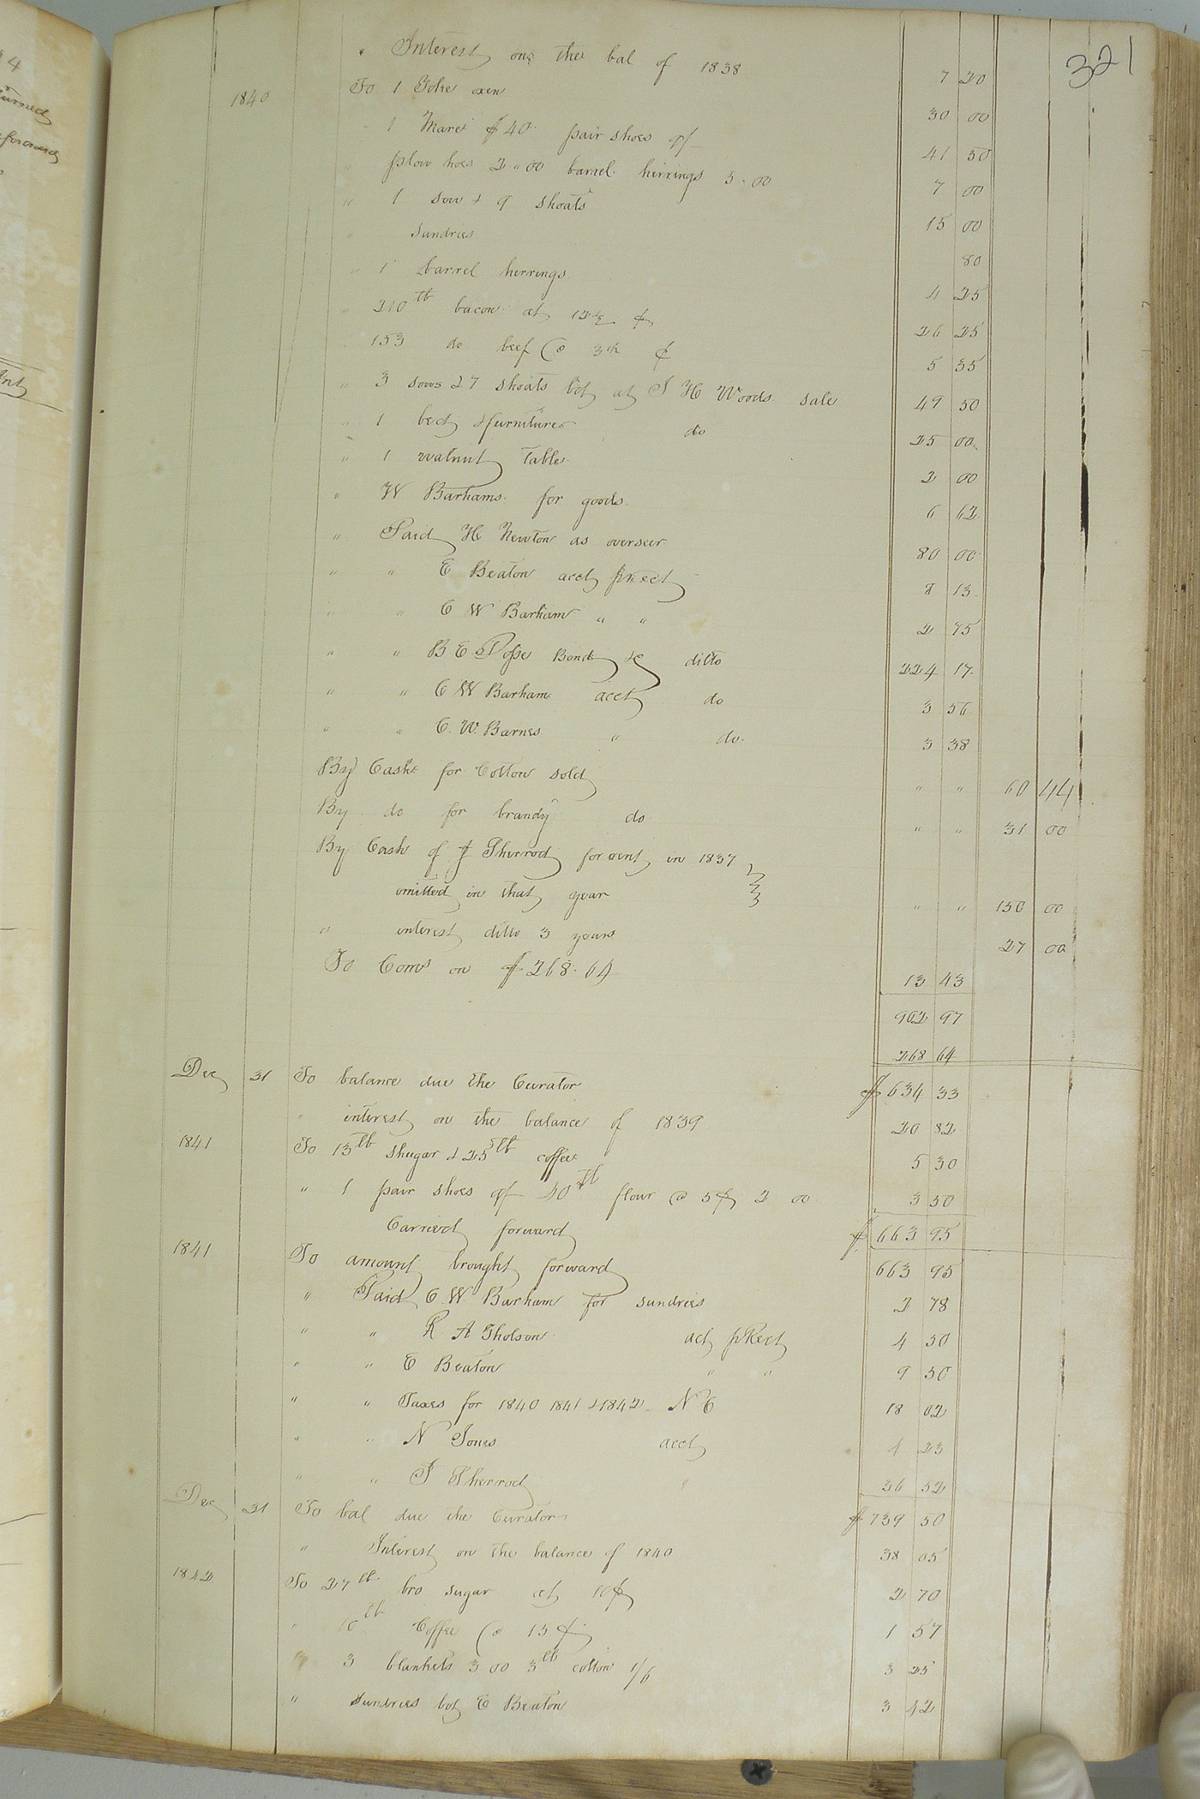 321
" Interest on the bal of 1838 7 20
1840 To 1 Yoke oxen 30 00
" 1 Mare $40 pair shoes 9/ 41 50
" plow hoes 2.00 barrel herrings 5.00 7 00
" 1 sow & 9 shoats 15 00
" sundries 80
" 1 barrel herrings 4 25
" 210 lb bacon at 12½ ¢ 26 25
" 153 do beef @ 3½ ¢ 5 35
" 3 sows 27 shoats bot at J H Woods sale 49 50
" 1 bed & furniture do 25 00
" 1 walnut Table 2 00
" W Barhams for goods 6 62
" Paid H Newton as overseer 80 00
" " E Beaton acct pr rect 8 13
" " C W Barham " " 2 75
" " B C Posse Bond & ditto 224 17
" " C W Barham acct do 3 56
" " C. W. Barnes " do. 3 38
By Cash for Cotton sold " " 60 44
By do for brandy do " " 31 00
By Cash of J Sherrod for rent in 1837
omitted in that year " " 150 00
" interest ditto 3 years 27 00
To Coms on $268.64 13 43
902 97
268 64
Dec 31 To balance due the Curator $634 33
" interest on the balance of 1839 20 82
1841 To 13 lb shugar & 25 lb coffee 5 30
" 1 pair shoes 9/ 40 lb flour @ 5¢ 2 00 3 50
Carried forward $663 95
1841 To amount brought forward 663 95
" Paid C W Barham for sundries 2 78
" " R A Gholson act pr Rect 4 50
" " E Beaton " " 9 50
" " Taxes for 1840 1841 & 1842 N C 18 02
" " N Jones acct 4 23
" " J Sherrod " 36 52
Dec 31 To bal due the Curator $739 50
" Interest on the balance of 1840 38 05
1842 To 27 lb bro sugar at 10¢ 2 70
" 10 lb Coffee @ 15¢ 1 57
" 3 blankets 3 00 3 lb cotton 1/6 3 25
" sundries bot E Beaton 3 42